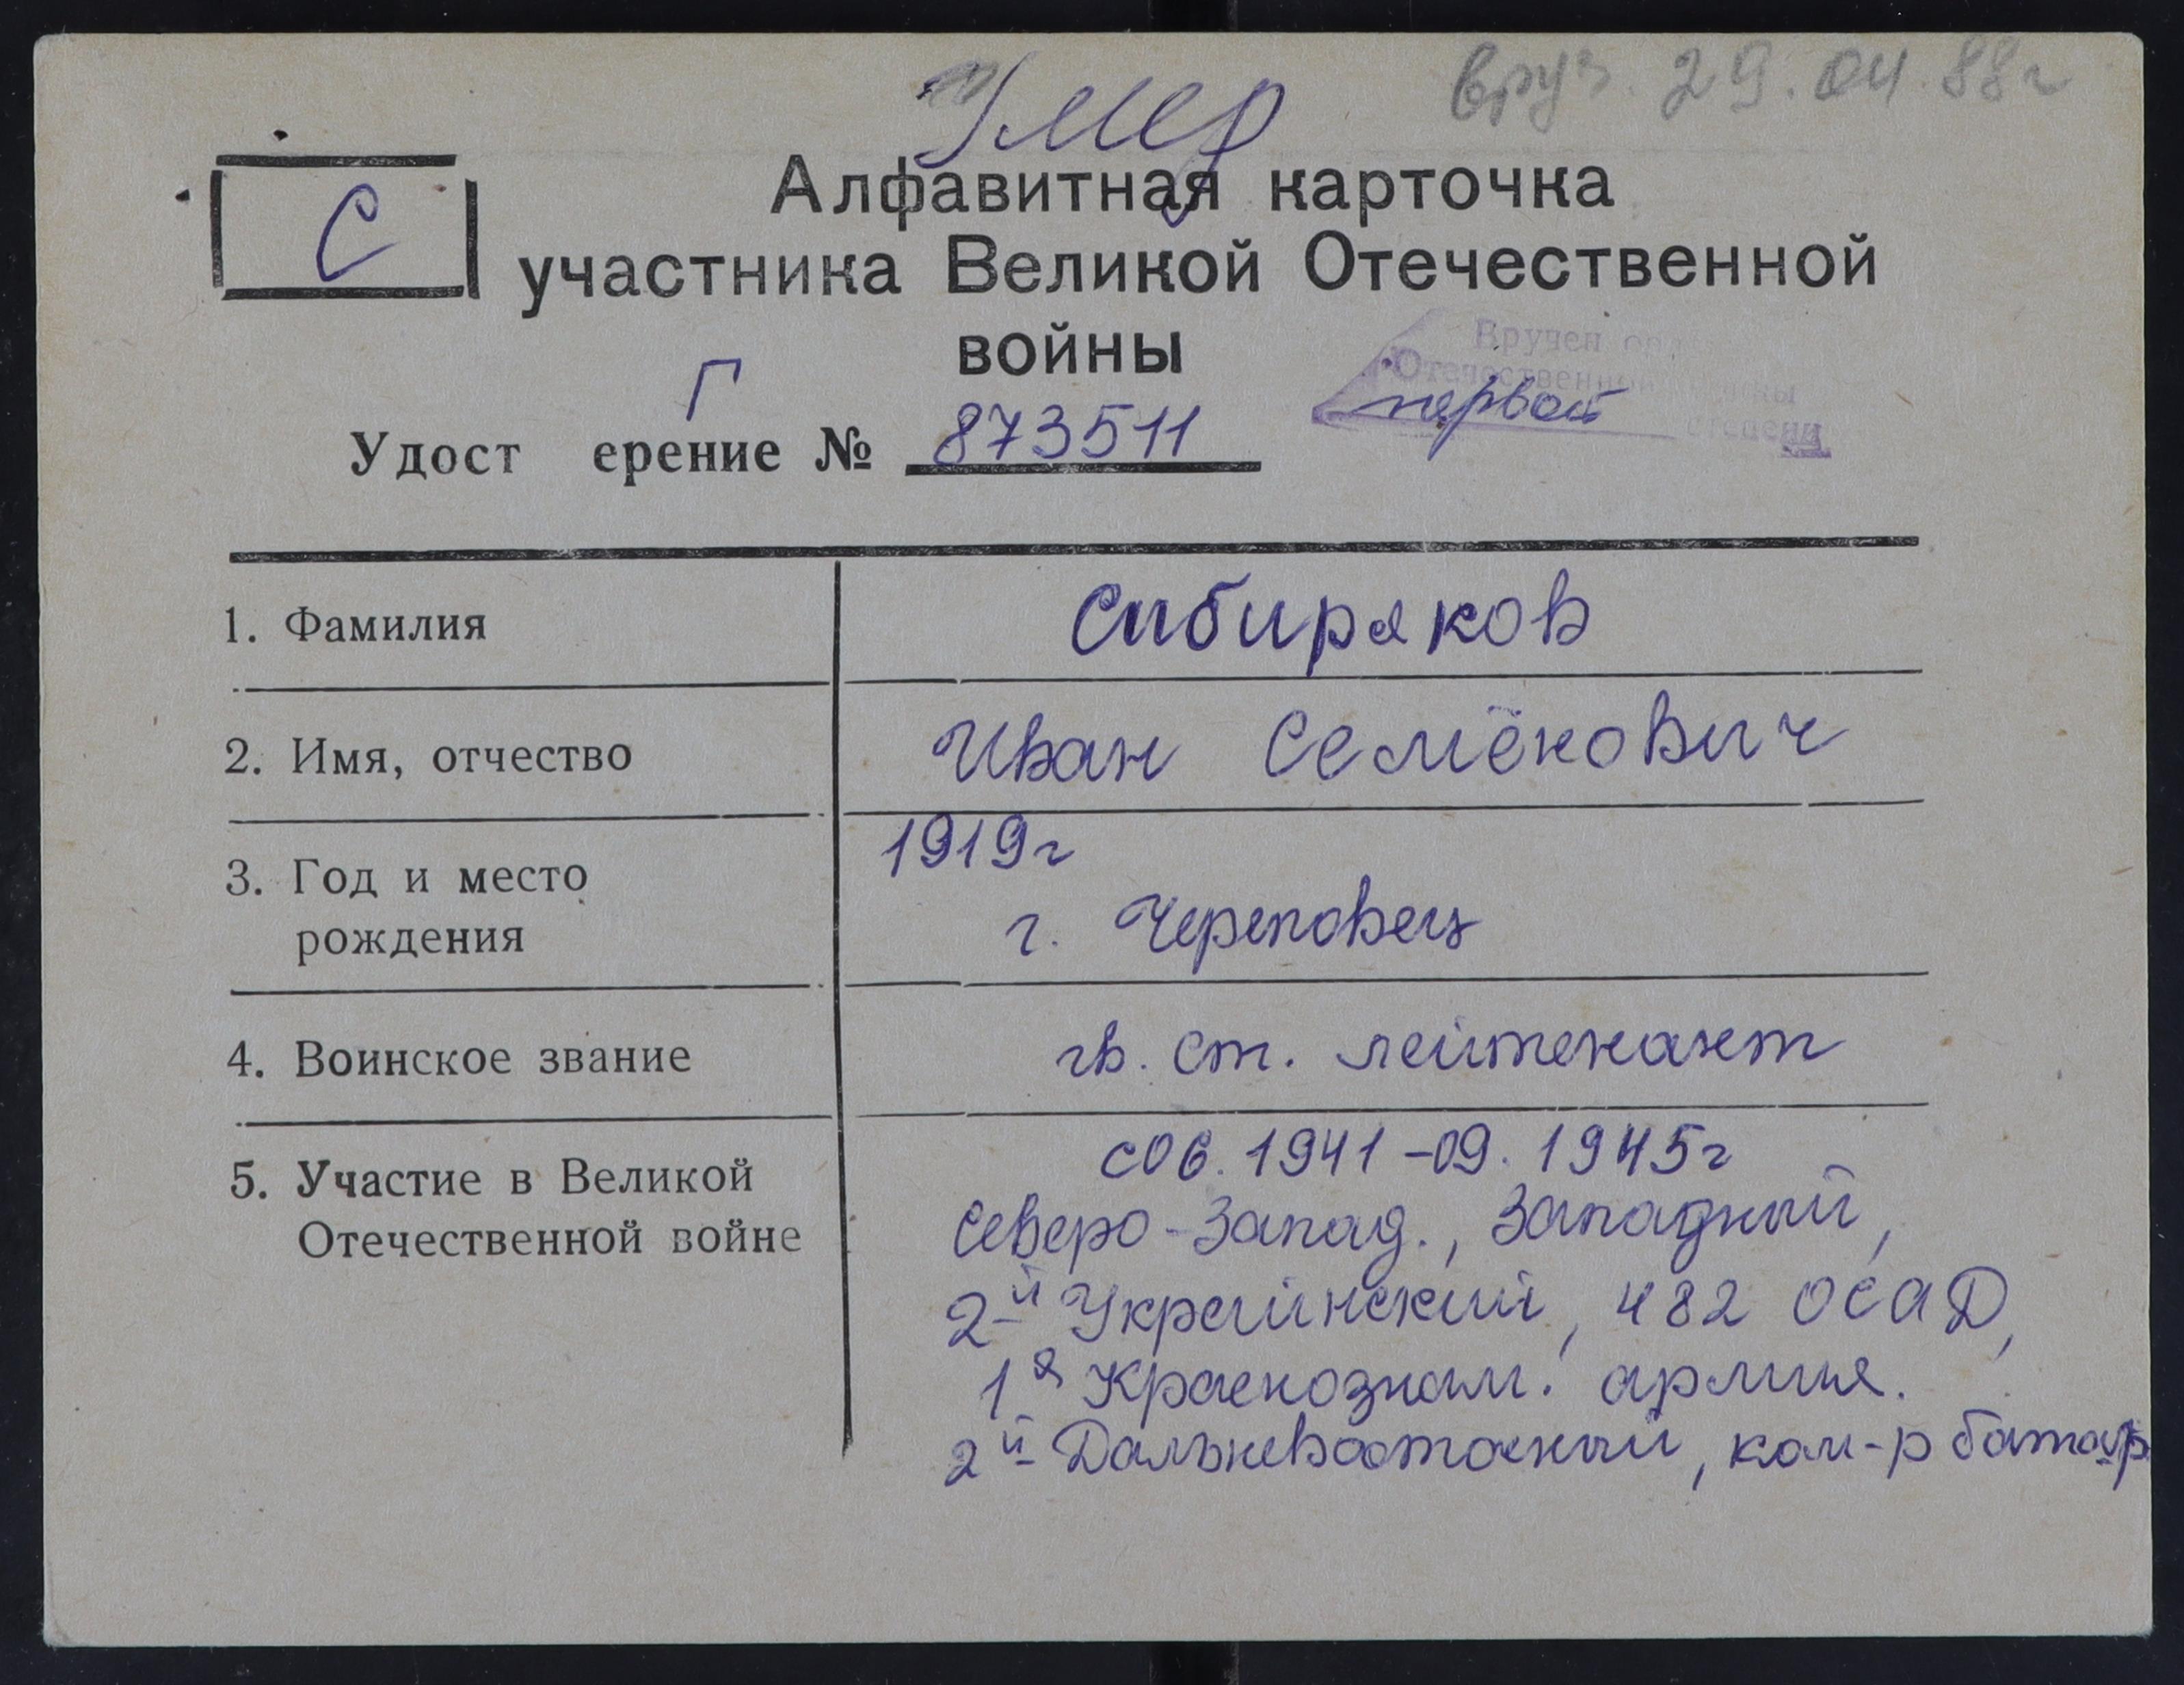 вруч. 29.04.88г
Умер
С
Алфавитная карточка
участника Великой Отечественной
войны
Вручен
Отечественной войны
первой степени
Г
Удост ерение № 873511
1. Фамилия Сибиряков
2. Имя, отчество Иван Семёнович
3. Год и место рождения 1919г
г. Череповец
4. Воинское звание гв. ст. лейтенант
5. Участие в Великой Отечественной войне с 06. 1941-09. 1945г
Северо-Запад., Западный,
2-й Украинский, 482 ОСАД,
1я Краснознам. армия.
2й Дальневосточный, ком-р батар